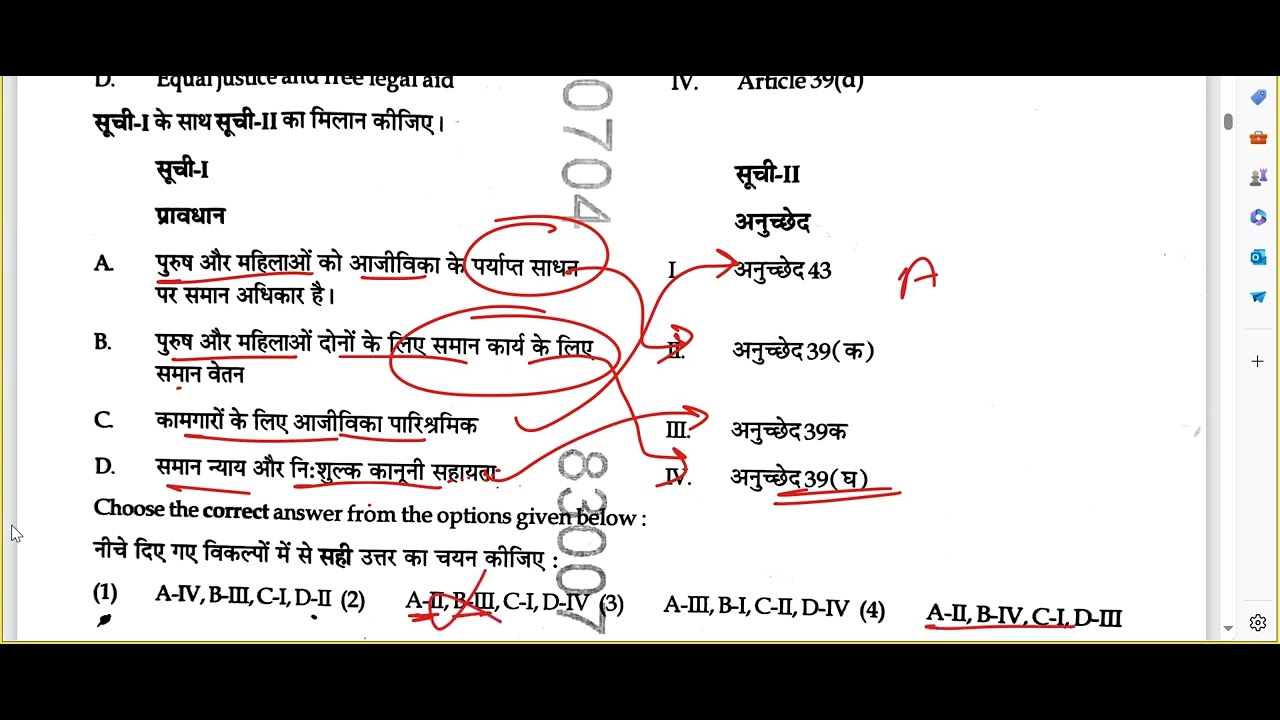 D. Equal justice and free legal aid IV. Article 39(d)
सूची-I के साथ सूची-II का मिलान कीजिए।
सूची-I सूची-II
प्रावधान अनुच्छेद
A. पुरुष और महिलाओं को आजीविका के पर्याप्त साधन I. अनुच्छेद 43 A
पर समान अधिकार है।
B. पुरुष और महिलाओं दोनों के लिए समान कार्य के लिए II. अनुच्छेद 39(क)
समान वेतन
C. कामगारों के लिए आजीविका पारिश्रमिक III. अनुच्छेद 39क
D. समान न्याय और नि:शुल्क कानूनी सहायता IV. अनुच्छेद 39(घ)
Choose the correct answer from the options given below :
नीचे दिए गए विकल्पों में से सही उत्तर का चयन कीजिए :
(1) A-IV, B-III, C-I, D-II (2) A-II, B-III, C-I, D-IV (3) A-III, B-I, C-II, D-IV (4) A-II, B-IV, C-I, D-III
0704
83007